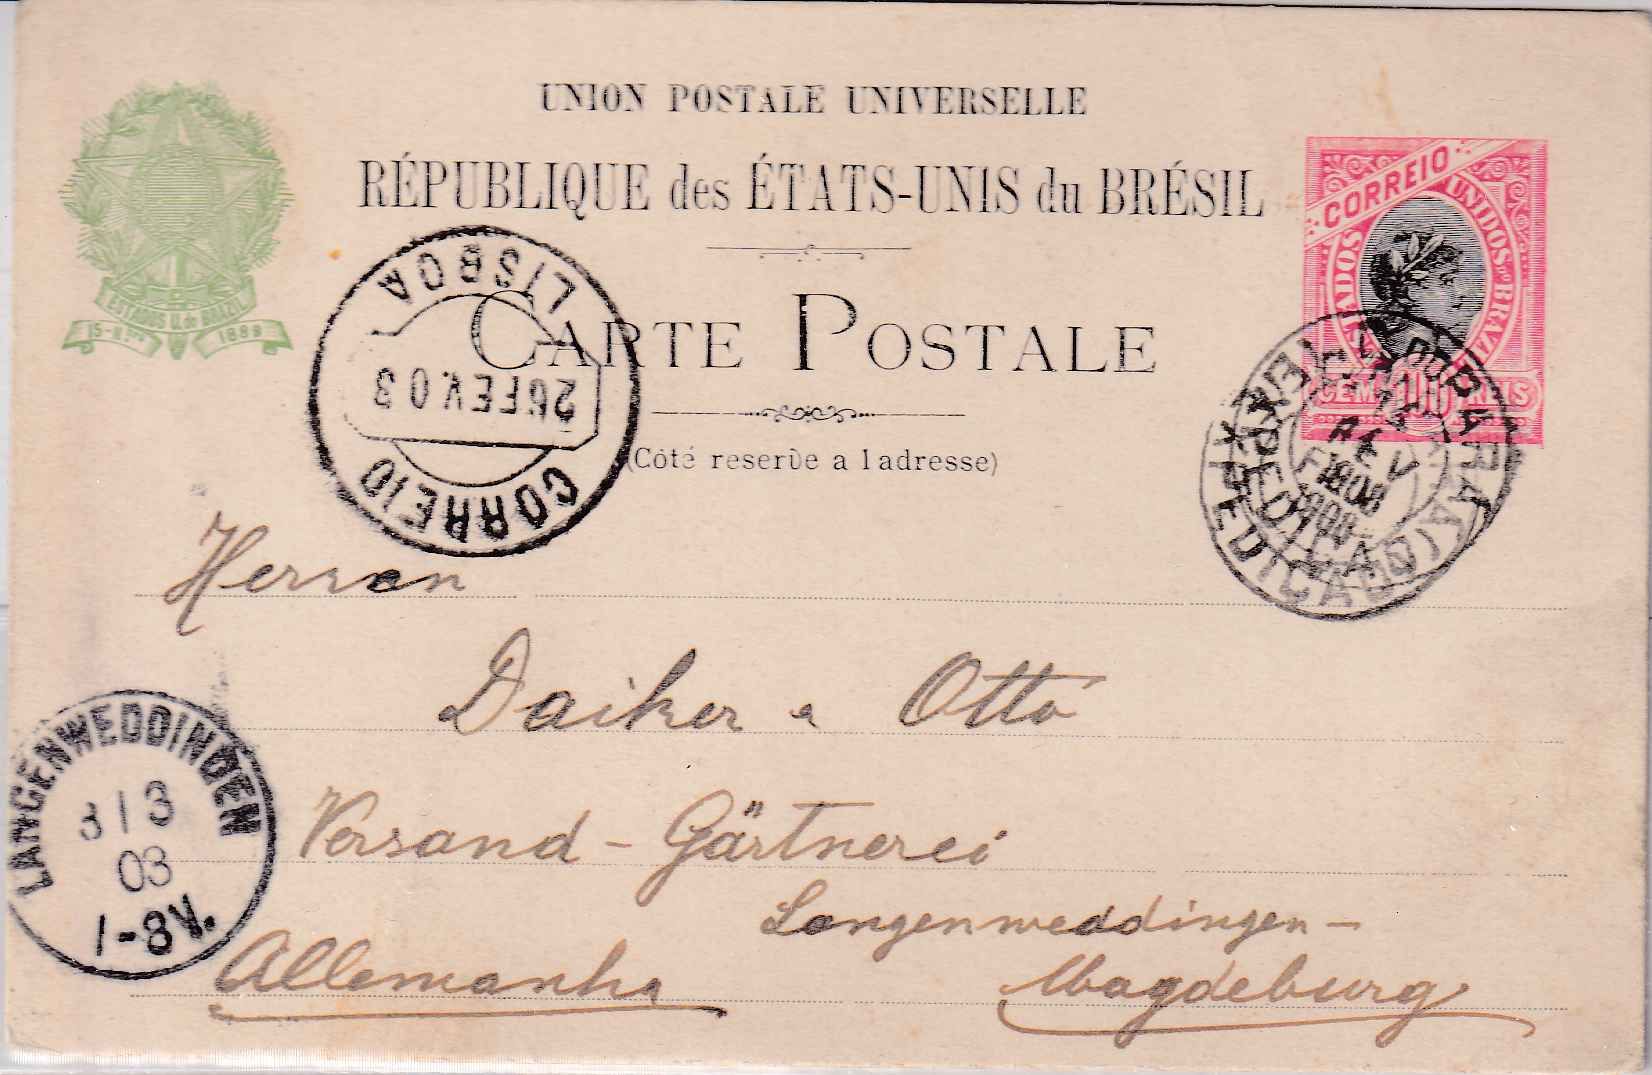 UNION POSTALE UNIVERSELLE
RÉPUBLIQUE des ÉTATS-UNIS du BRÉSIL
CARTE POSTALE
(Côté reservé a l adresse)
ESTADOS U. do BRAZIL
15-N.bro 1889
CORREIO
ESTADOS UNIDOS DO BRAZIL
CEM 100 REIS
CORREIO
26 FEV. 03
LISBOA
PARA
EXPEDIÇÃO
FEV
Herren
Daiker & Otto
Versand - Gärtnerei
Langenweddingen -
Magdeburg
Allemanha
LANGENWEDDINGEN
3 / 3
03
1-8V.